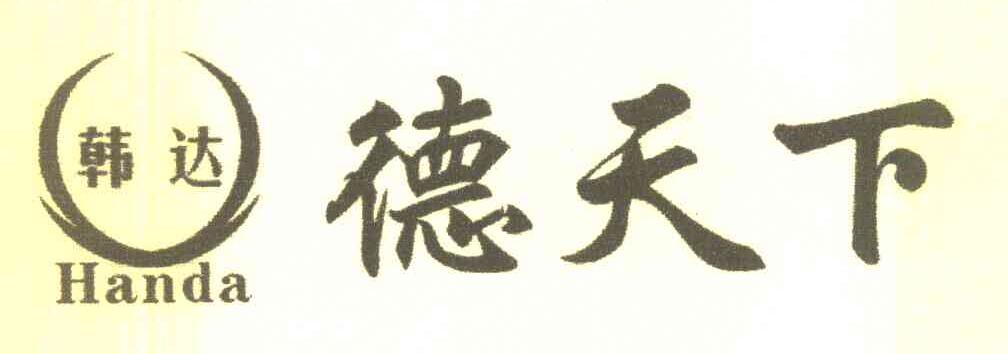 韩达
Handa
德天下